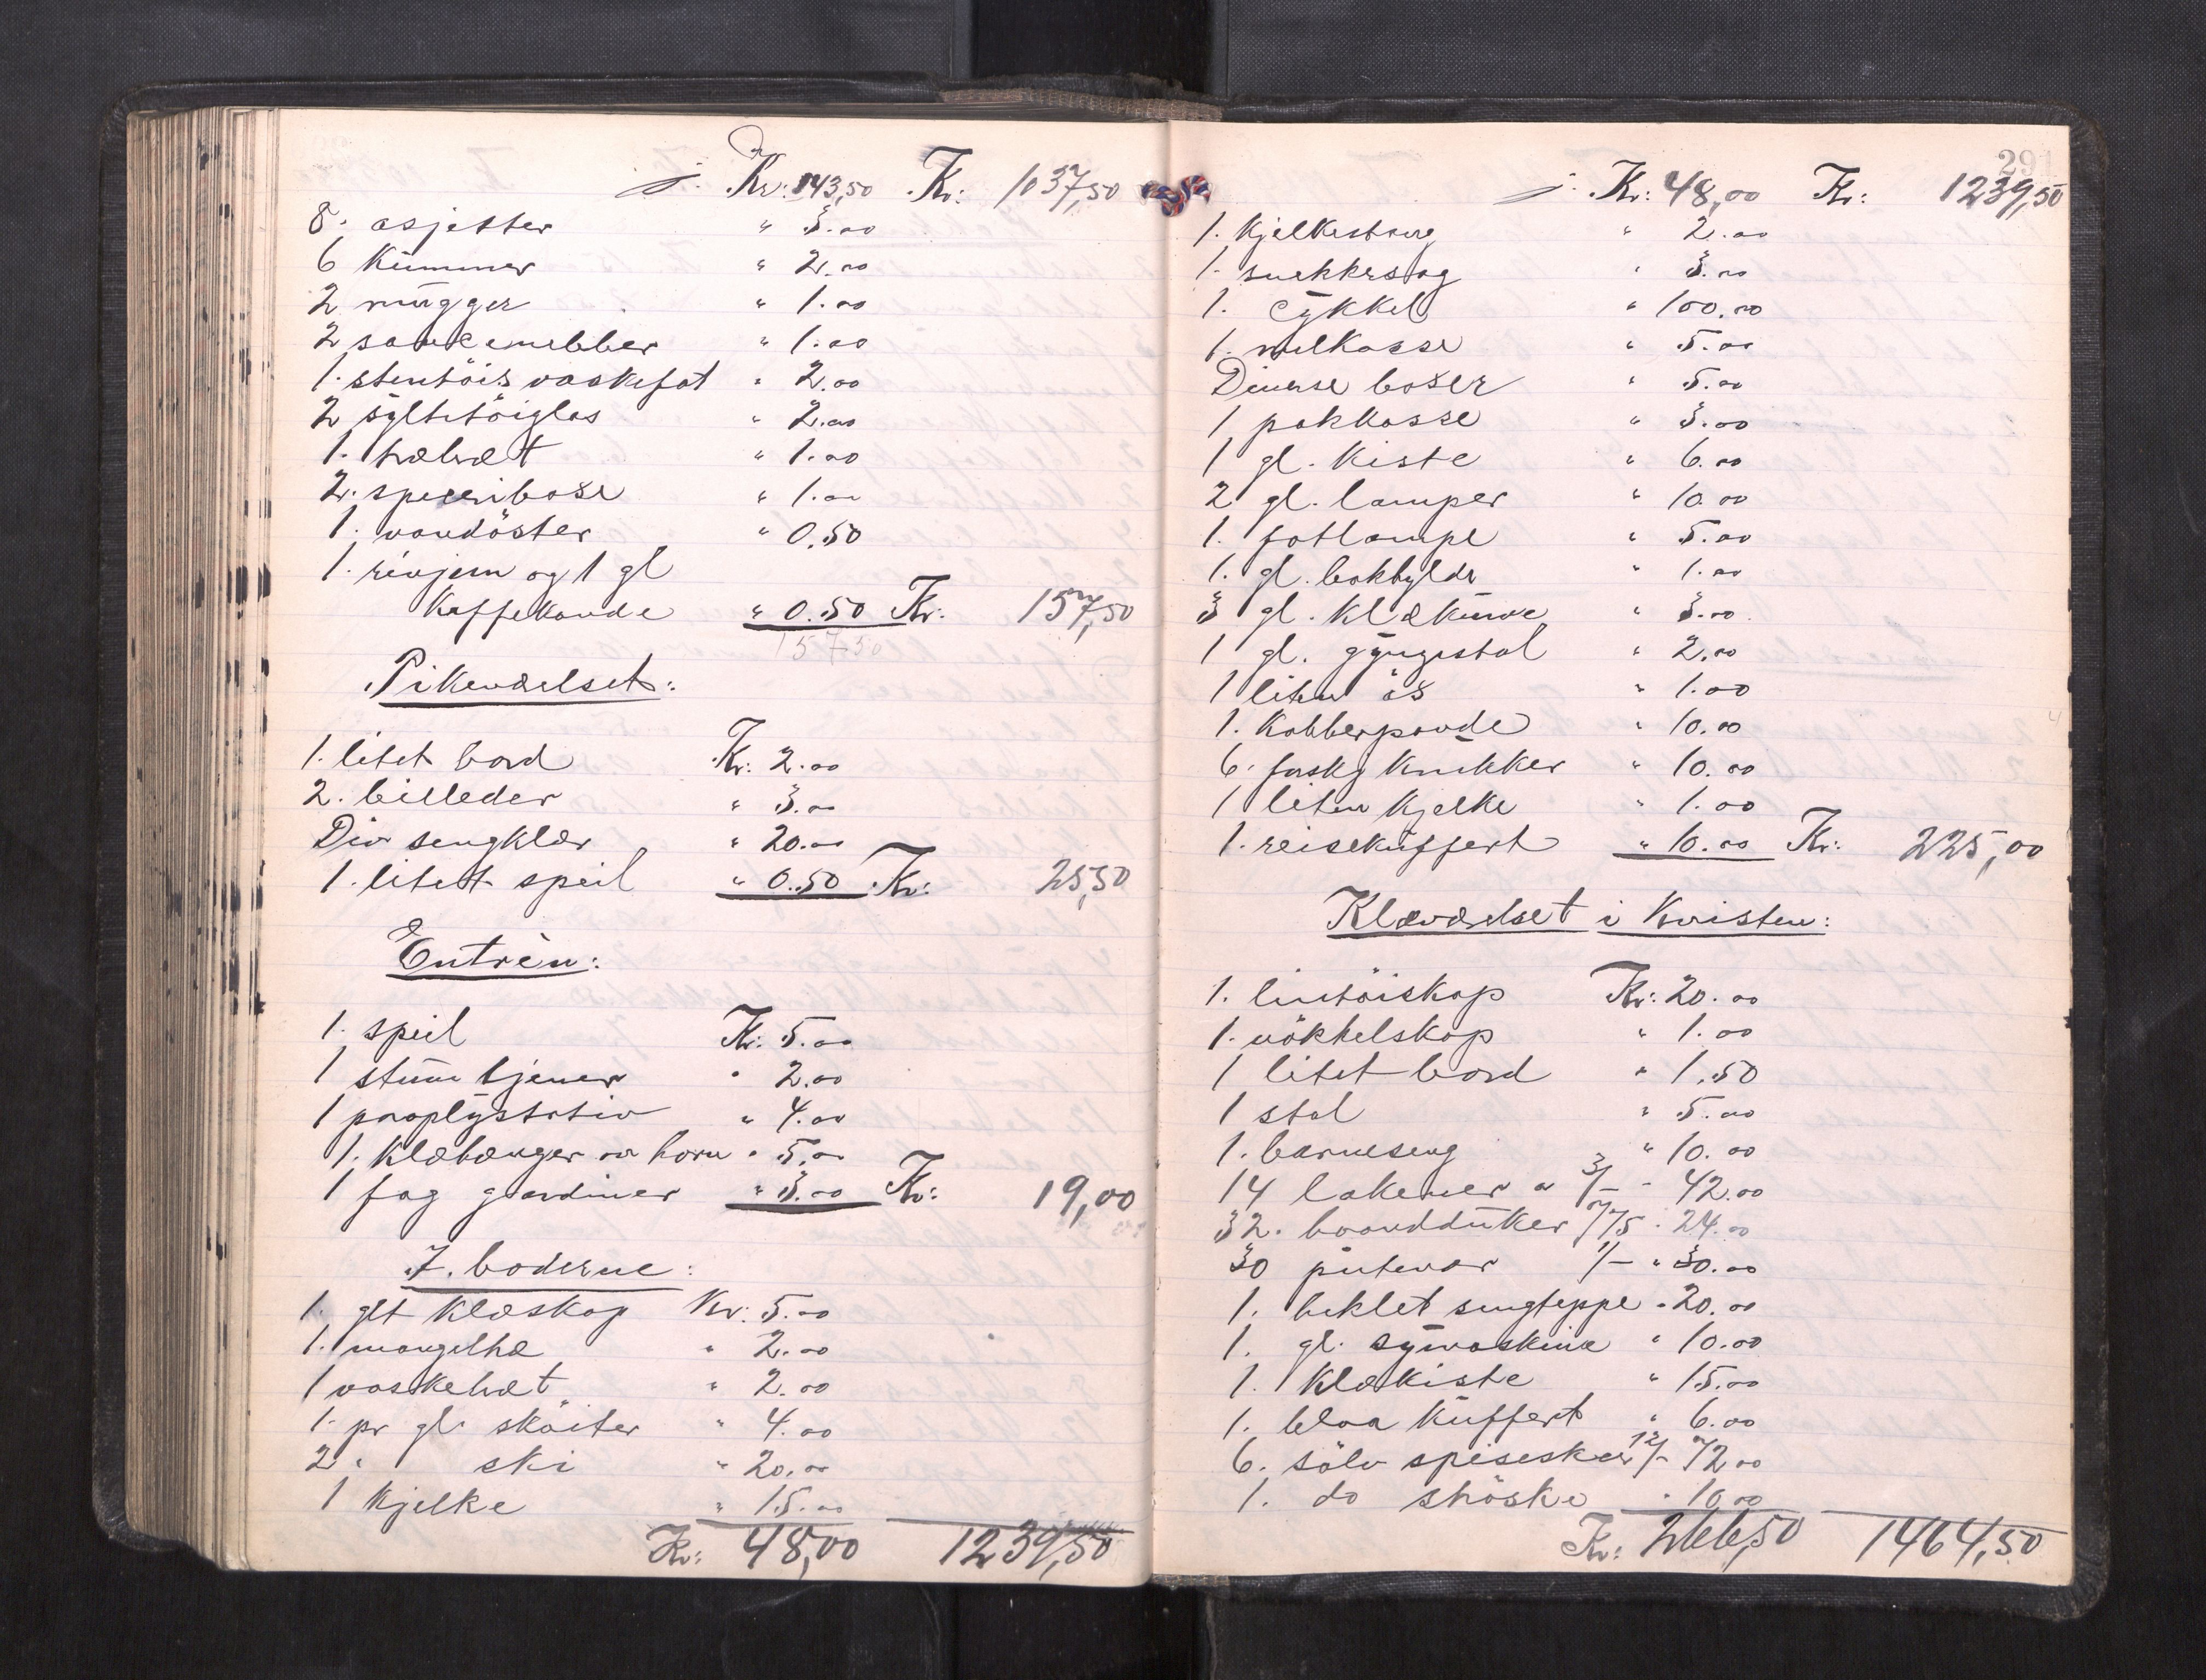 j. Kr: 143,50 Kr: 1037,50
8. asjetter " 3.00
6 Kummer " 2.00
2 mugger " 1.00
2 sausenebber " 1.00
1. stentöis vaskefat " 2.00
2 syltetöiglas " 2.00
1. trækræt " 1.00
2. speceribokse " 1.00
1. vandöster " 0.50
1. rivjern og 1 gl
Kaffekande " 0.50 Kr: 157,50
157 50
Pikeværelset:
1. litet bord Kr: 2.00
2. billeder " 3.00
Div sengklær " 20.00
1. litet speil " 0.50 Kr: 25,50
Entrèen:
1. speil Kr: 5.00
1 stum tjener " 2.00
1 paraplystativ " 4.00
1. Klæhænger av horn " 5.00
1 fag gardiner " 3.00 Kr: 19,00
I. boderne:
1. glt Klæskap Kr: 5.00
1. mangeltræ " 2.00
1 vaskebræt " 2.00
1. pr gl. sköiter " 4.00
2 " ski " 20.00
1 Kjelke " 15.00
Kr: 48,00 1239,50
291
j. Kr: 48,00 Kr: 1239,50
1. Kjelkestang " 2.00
1. snekkersag " 3.00
1. Cykkel " 100.00
1. melkasse " 5.00
Diverse bokser " 5.00
1 pakkasse " 3.00
1 gl. Kiste " 6.00
2 gl. lamper " 10.00
1. fotlampe " 5.00
1. gl. bokhylde " 1.00
3 gl. Klækurve " 3.00
1 gl. gyngestol " 2.00
1 liten öks " 1.00
1. Kobberpande " 10.00
6. forskj Krukker " 10.00
1 liten Kjelke " 1.00
1. reisekuffert " 10.00 Kr: 225,00
Klæværelset i Kvisten:
1. lintöiskap Kr: 20.00
1. nökkelskap " 1.00
1 litet bord " 1.50
1 stol " 5.00
1. barneseng " 10.00
14 lakener a 3/- " 42.00
32. haandduker /75 " 24.00
30 putevar 1/- " 30.00
1. heklet sengteppe " 20.00
1. gl. symaskine " 10.00
1. Klækiste " 15.00
1. blaa Kuffert " 6.00
6. sölv spiseskeer 12/- 72.00
1. do ströske " 10.00
Kr: 266,50 1464,50